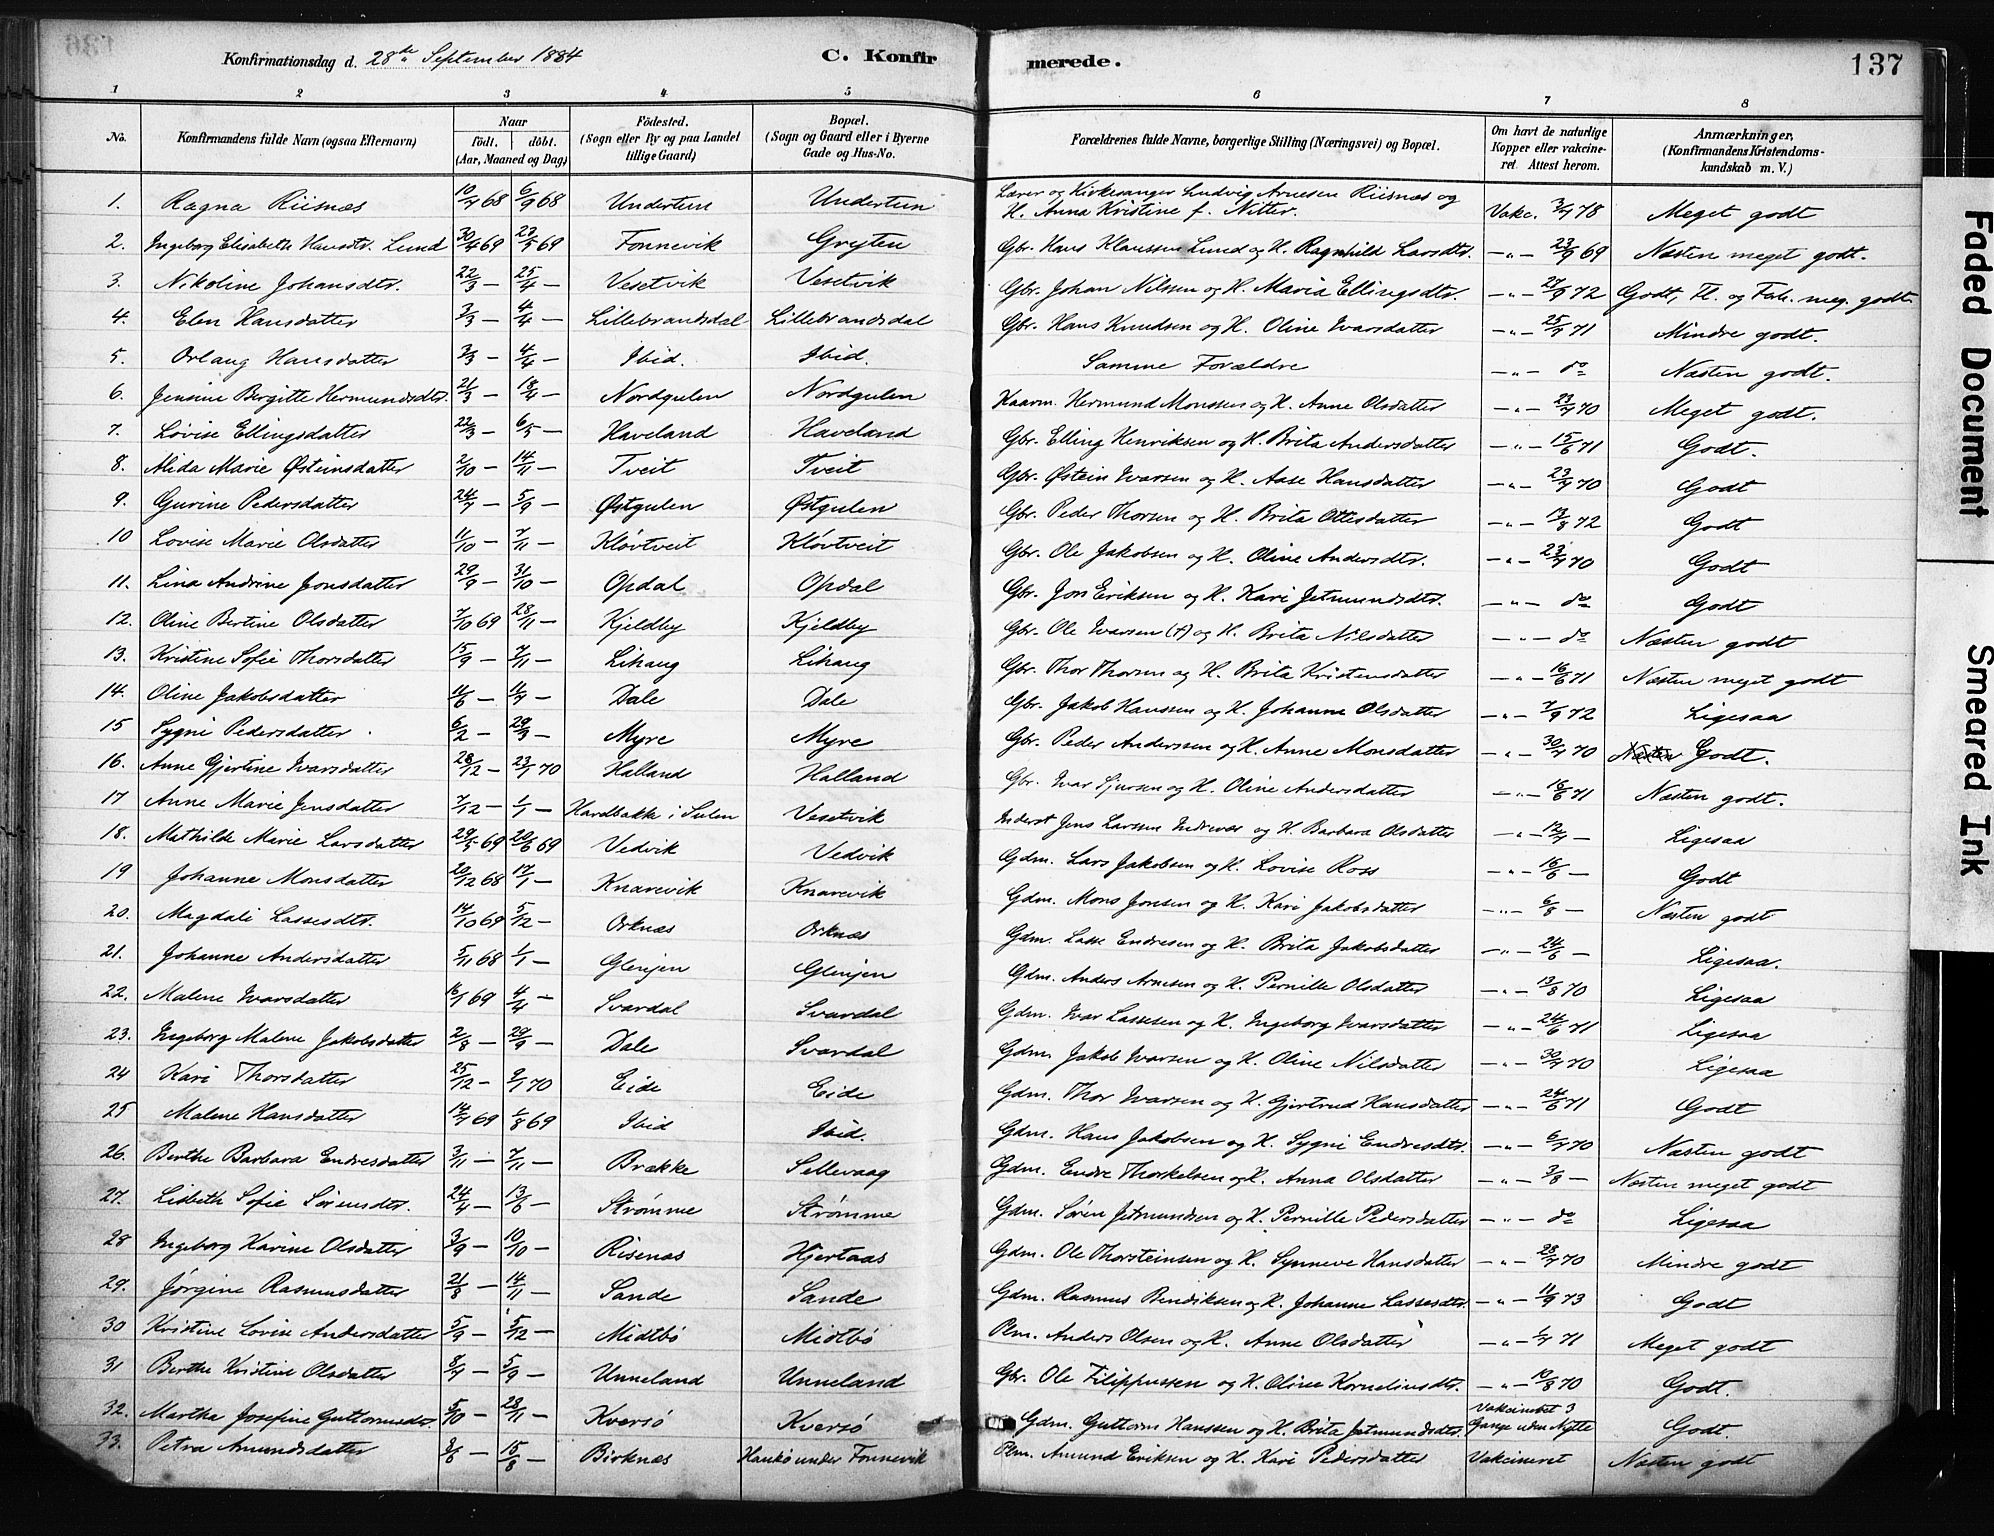 Konfirmationsdag d. 28de September 1884 C. Konfirmerede. 137
1 2 3 4 5 6 7 8
No. Konfirmandens fulde Navn (ogsaa Efternavn) Naar födt. döbt. (Aar, Maaned og Dag) Födested. (Sogn eller By og paa Landet tillige Gaard) Bopæl. (Sogn og Gaard eller i Byerne Gade og Hus-No. Forældrenes fulde Navne, borgerlige Stilling (Næringsvei) og Bopæl. Om havt de naturlige Kopper eller vakcineret Attest herom. Anmærkninger, (Konfirmandens Kristendomskundskab m. V.)
1. Ragna Riisnæs 10/7 68 6/9 68 Undertun Undertun Lærer og Kirkesanger Ludvig Arnesen Riisnæs og H. Anna Kristine f. Nitter. Vakc. 3/7 78 Meget godt
2. Ingeborg Elisabeth Hansdtr. Lund 30/4 69 23/5 69 Fonnevik Grejten Gbr. Hans Klaussen Lund og H. Ragnhild Larsdtr. —"— 23/9 69 Næsten meget godt.
3. Nikoline Johansdtr. 22/3 — 25/4 — Vesetvik Vesetvik Gbr. Johan Nilssen og H. Maria Ellingsdtr. —"— 27/9 72 Godt, Fl. og Fab. meg. godt
4. Elen Hansdatter 3/3 — 4/4 — Lillebrandsdal Lillebrandsdal Gbr. Hans Knudsen og H. Oline Ivarsdatter —"— 25/7 71 Mindre godt.
5. Orlaug Hansdatter 3/3 — 4/4 — Ibid. Ibid. Samme Forældre —"— do Næsten godt.
6. Jensine Birgitte Hermundsdtr. 21/3 — 18/4 — Nordgulen Nordgulen Kaarm. Hermund Monssen og H. Anne Olsdatter —"— 23/7 70 Meget godt.
7. Lovise Ellingsdatter 22/3 — 6/5 — Haveland Haveland Gbr. Elling Henriksen og H. Brita Andersdatter —"— 15/6 71 Godt.
8. Alida Marie Østeinsdatter 2/10 — 14/11 — Tveit Tveit Gbr. Østein Ivarsen og H. Aase Hansdatter —"— 23/7 70 Godt
9. Gurine Pedersdatter 24/7 — 5/9 — Østgulen Østgulen Gbr. Peder Thorsen og H. Brita Ottesdatter —"— 13/8 72 Godt
10 Lovise Marie Olsdatter 11/10 — 7/11 — Kløvtveit Kløvtveit Gbr. Ole Jakobsen og H. Oline Andersdtr. —"— 23/7 70 Godt
11. Lina Andrine Jonsdatter 29/9 — 31/10 — Opdal Opdal Gbr. Jon Eriksen og H. Kari Jetmundsdtr. —"— do Godt
12. Oline Bertine Olsdatter 7/10 69 28/11 — Kjeldby Kjeldby Gbr. Ole Ivarsen (†) og H. Brita Nilsdatter —"— do Næsten godt
13. Kristine Sofie Thorsdatter 15/9 — 7/11 — Lihaug Lihaug Gbr. Thor Thorsen og H. Brita Kristensdatter —"— 16/6 71 Næsten meget godt
14. Oline Jakobsdatter 11/6 — 11/7 — Dale Dale Gbr. Jakob Hanssen og H. Johanne Olsdatter —"— 7/9 72 Ligesaa
15 Sygni Pedersdatter 6/2 — 29/3 — Myre Myre Gbr. Peder Anderssen og H. Anne Monsdatter —"— 30/7 70 Næsten Godt.
16. Anne Gjertine Ivarsdatter 28/12 — 23/1 70 Halland Halland Gbr. Ivar Sjursen og H. Oline Andersdatter —"— 16/6 71 Næsten godt.
17 Anne Marie Jensdatter 7/12 — 1/1 — Hardbakke i Sulen Vesetvik Inderst Jens Larsen Indrevær og H. Barbara Olsdatter —"— 12/7 — Ligesaa
18. Mathilde Marie Larsdatter 29/5 69 20/6 69 Vedvik Vedvik Gdm. Lars Jakobsen og H. Lovise Ross —"— 16/6 — Godt
19 Johanne Monsdatter 20/12 68 17/1 — Knarevik Knarevik Gdm. Mons Jonsen og H. Kari Jakobsdatter —"— 6/8 — Næsten godt
20. Magdali Lassesdtr. 14/10 69 5/12 — Orknæs Orknæs Gdm. Lasse Endresen og H. Brita Jakobsdatter —"— 24/6 — Ligesaa.
21. Johanne Andersdatter 5/11 68 1/1 — Glenjen Glenjen Gdm. Anders Arnesen og H. Pernille Olsdatter —"— 13/8 70 Ligesaa
22. Malene Ivarsdatter 16/1 69 4/4 — Svardal Svardal Gdm. Ivar Lassesen og H. Ingeborg Ivarsdatter —"— 24/6 71 Ligesaa
23. Ingeborg Malene Jakobsdatter 2/8 — 29/9 — Dale Svardal Gdm. Jakob Ivarsen og H. Oline Nilsdatter —"— 30/7 70 Ligesaa
24 Kari Thorsdatter 25/12 — 9/1 70 Eide Eide Gdm. Thor Ivarsen og H. Gjertrud Hansdatter —"— 24/6 71 Godt
25 Malene Hansdatter 14/7 69 1/8 69 Ibid Ibid. Gdm. Hans Jakobsen og H. Sygni Endresdtr. —"— 6/7 70 Næsten godt
26. Berthe Barbara Endresdatter 3/11 — 7/11 — Brække Sellevaag Gdm. Endre Thorkelsen og H. Anna Olsdatter —"— 3/8 — Næsten meget godt
27. Lisbeth Sofie Sørensdtr. 24/4 — 13/6 — Strømme Strømme Gdm. Søren Jetmundsen og H. Pernille Pedersdatter —"— do Ligesaa
28 Ingeborg Karine Olsdatter 3/9 — 10/10 — Risenæs Hjertaas Gdm. Ole Thorsteinsen og H. Synneve Hansdatter —"— 23/7 70 Mindre godt
29. Jørgine Rasmusdatter 21/8 — 14/11 — Sande Sande Gdm. Rasmus Bendiksen og H. Johanne Lassesdtr. —"— 11/9 73 Godt
30 Kristine Lovise Andersdatter 5/9 — 5/12 — Midtbø Midtbø Plm. Anders Olsen og H. Anne Olsdatter —"— 1/7 71 Meget godt
31 Berthe Kristine Olsdatter 8/7 — 5/9 — Unneland Unneland Gbr. Ole Filippussen og H. Oline Korneliusdtr. —"— 10/8 70 Godt.
32. Martha Josefine Guttormsdtr. 5/10 — 28/11 — Kversø Kversø Gdm. Guttorm Hanssen og H. Brita Jetmundsdtr. Vakcineret 3 Gange uden Nytte Godt.
33. Petra Amundsdatter 3/6 — 15/8 — Birknæs Haukø under Fonnevik Plm. Amund Eriksen og H. Kari Pedersdatter Vakcineret Næsten godt
Faded Document
Smeared Ink